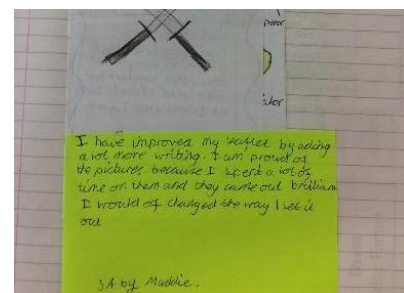 I have improved my leaflet by adding
a lot more writing. I am proud of
the pictures because I spent a lot of
time on them and they came out brilliant
I would of changed the way I set it
out
SA by Maddie.